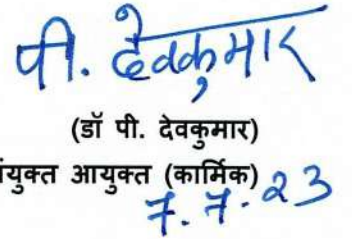 पी. देवकुमार
(डॉ पी. देवकुमार)
युक्त आयुक्त (कार्मिक)
7.7.23